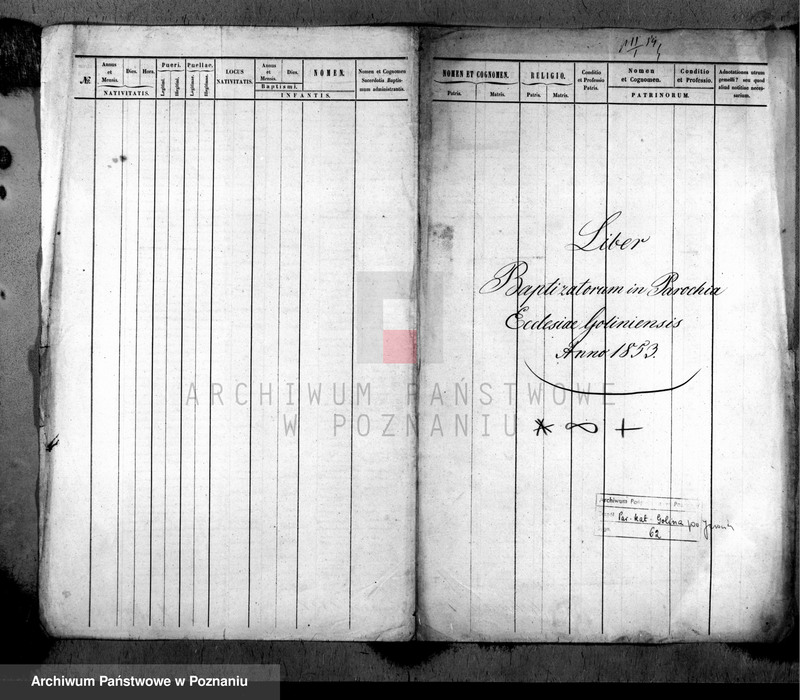 №.
Annus et Mensis.
Dies.
Hora.
NATIVITATIS.
Pueri.
Legitimi.
Illegitimi.
Puellae.
Legitimae.
Illegitimae.
LOCUS NATIVITATIS.
Annus et Mensis.
Dies.
Baptismi.
NOMEN.
INFANTIS.
Nomen et Cognomen Sacerdotis Baptismum administrantis.
NOMEN ET COGNOMEN.
Patris.
Matris.
RELIGIO.
Patris.
Matris.
Conditio et Professio Patris.
Nomen et Cognomen.
Conditio et Professio.
PATRINORUM.
Adnotationes utrum gemelli? seu quod aliud notitiae necessarium.
Liber
Baptizatorum in Parochia
Ecclesiae Goliniensis
Anno 1853.
* ∞ +
Archiwum
Par. kat. Golina
62
ARCHIWUM PAŃSTWOWE
W POZNANIU
Archiwum Państwowe w Poznaniu